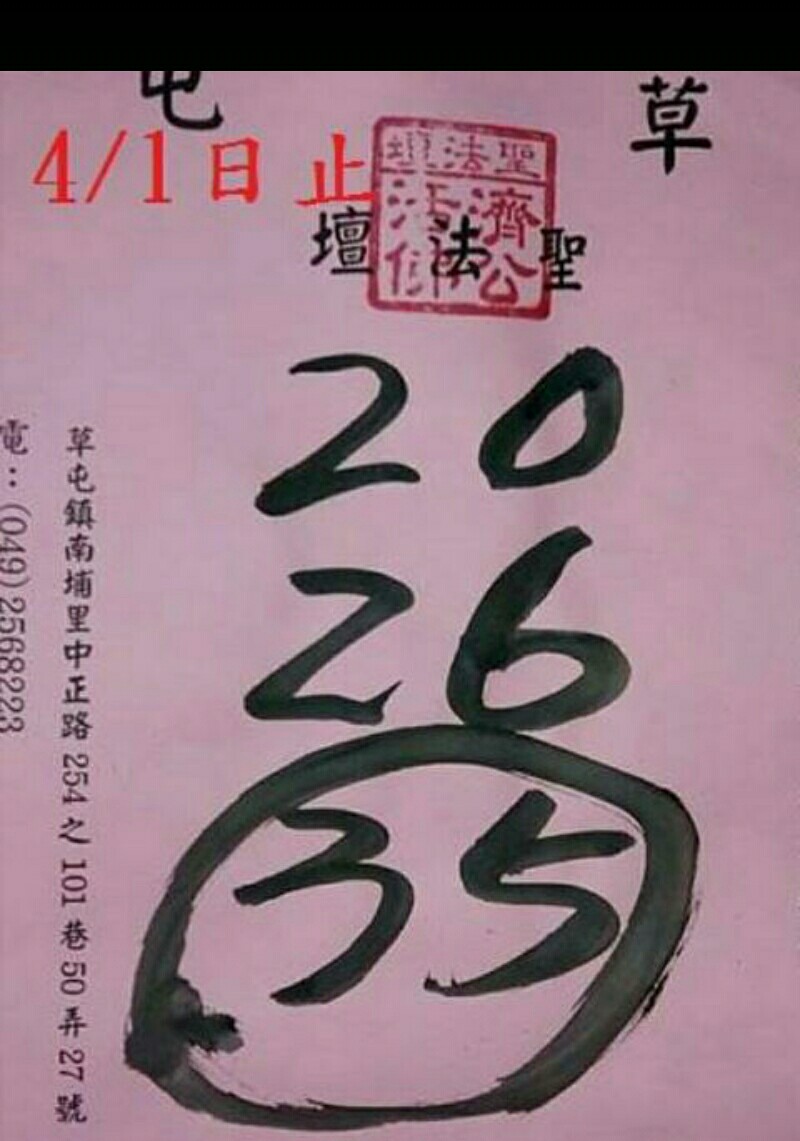 草屯
4/1日止
聖法壇
聖法壇
濟公
活佛
20
26
35
草屯鎮南埔里中正路254之101巷50弄27號
電：(049)2568223